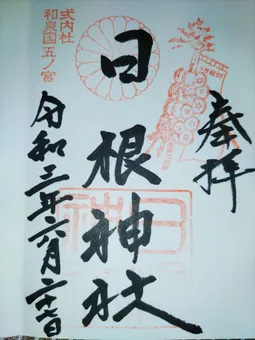 奉拝
日根神社
式内社
和泉国五ノ宮
令和三年六月二十七日